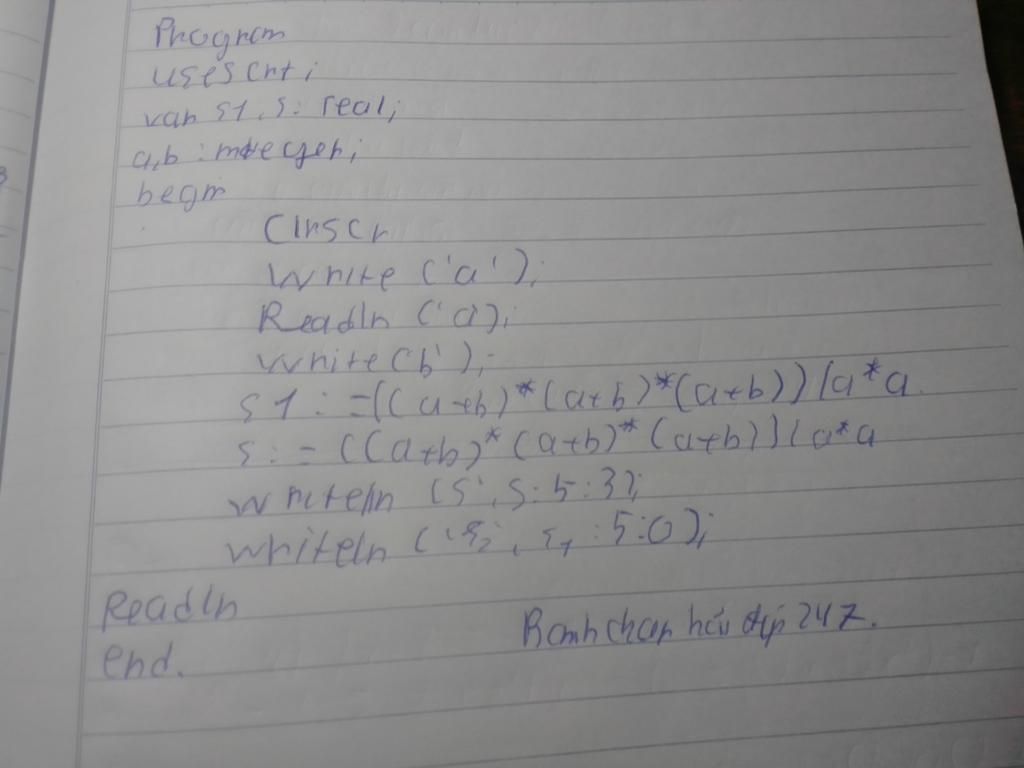 Program
uses crt;
var s1, s: real;
a,b : integer;
begin
Clrscr
Write ('a');
Readln ('a);
Write(b');
s1: =((a+b)*(a+b)*(a+b))/a*a
s: = ((a+b)*(a+b)*(a+b))/a*a
writeln (s', s:5:3);
writeln (', s1:5:0);
Readln
end.
hỏi đáp 247.